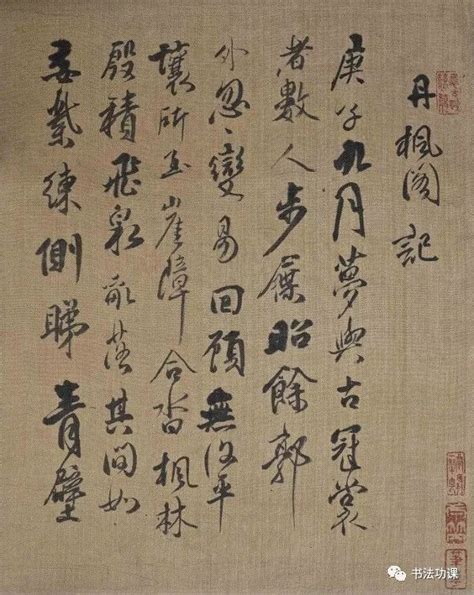 丹楓阁記
庚子九月夢與古冠裳
者數人步屧昭餘郭
外忽〻變易回顧無復平
壤所至崖障合沓楓林
殷積飛泉落其間如
練側睇青壁
书法功课